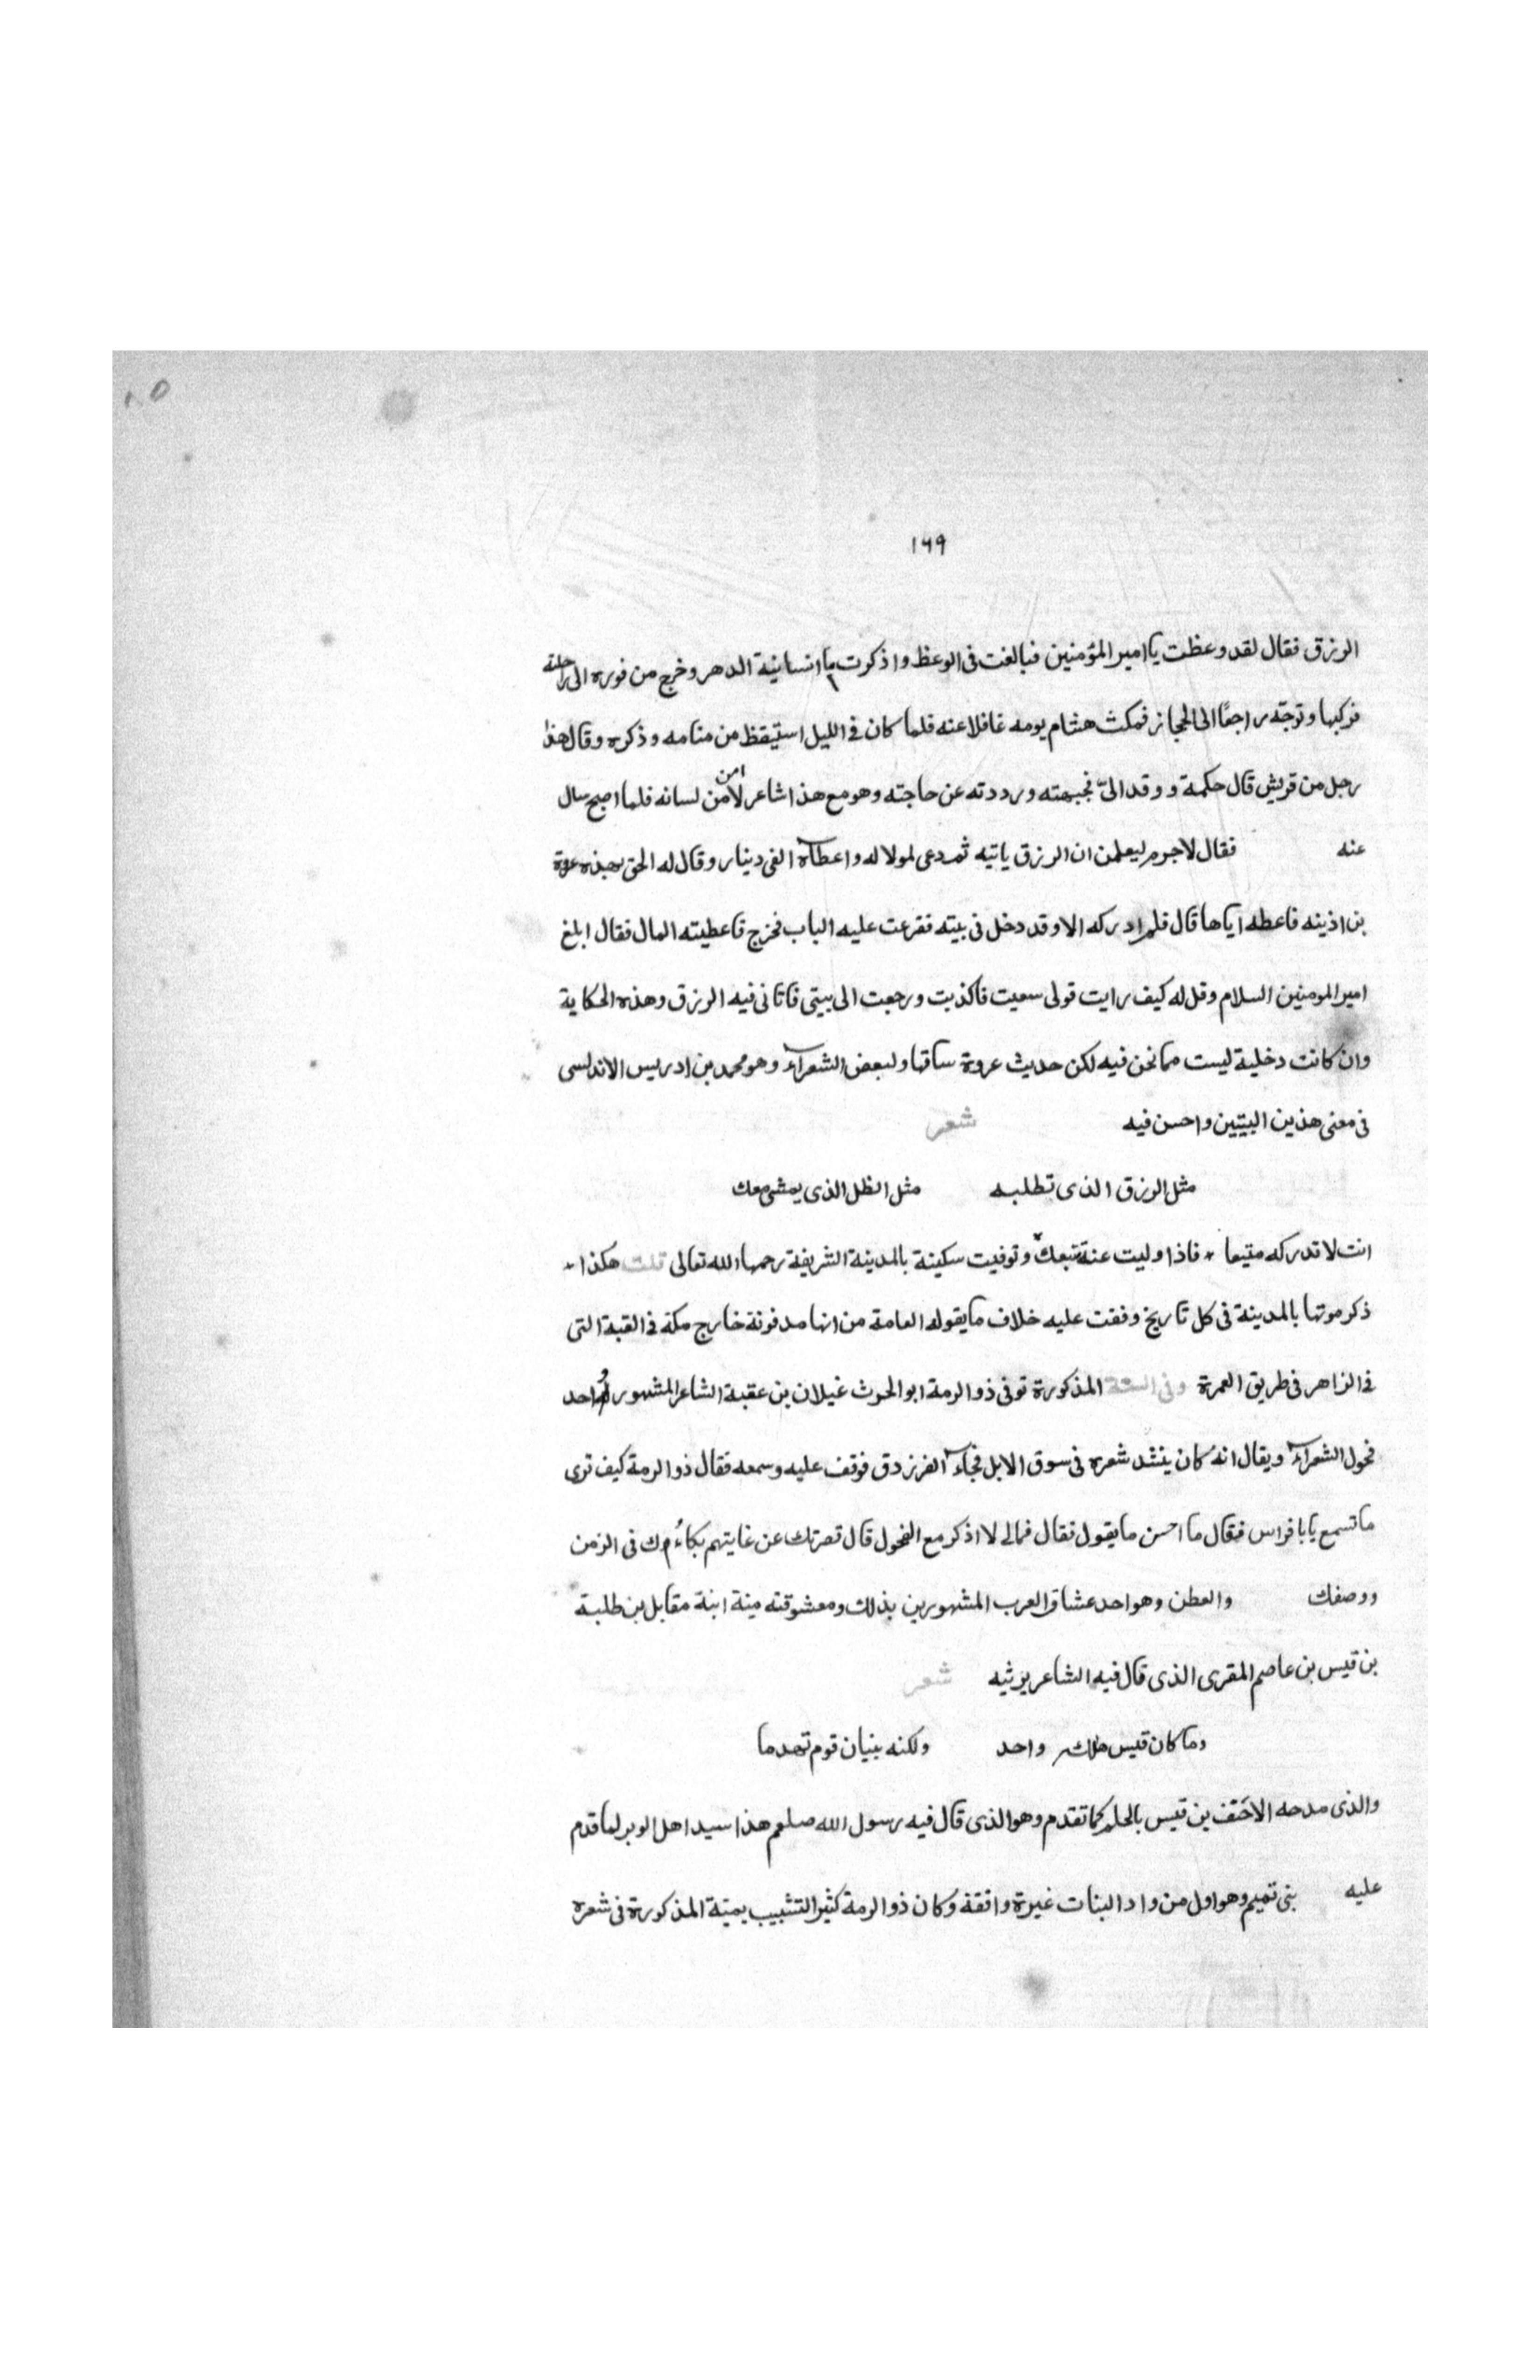 ١٦٩
الرزق فقال لقد وعظت يا امير المؤمنين فبالغت فى الوعظ واذكرت ما انسانية الدهر وخرج من فوره الى راحلته
فركبها وتوجّه راجعًا الى الحجاز فمكث هشام يومه غافلا عنه فلما كان فى الليل استيقظ من منامه وذكره وقال هذا
رجل من قريش قال حكمة ووفد الىّ فجبهته ورددته عن حاجته وهو مع هذا شاعر لا امن لسانه فلما اصبح سال
عنه فقال لاجرم ليعلمن ان الرزق ياتيه ثم دعى لمولا له واعطاه الفى دينار وقال له الحق بهذه عروة
بن اذينه فاعطه اياها قال فلم ادركه الا وقد دخل فى بيته فقرعت عليه الباب فخرج فاعطيته المال فقال ابلغ
امير المومنين السلام وقل له كيف رايت قولى سعيت فاكذبت ورجعت الى بيتى فاتانى فيه الرزق وهذه الحكاية
وان كانت دخلية ليست مما نحن فيه لكن حديث عروة ساقها ولبعض الشعرآء وهو محمد بن ادريس الاندلسى
فى معنى هذين البيتين واحسن فيه شعر
مثل الرزق الذى تطلبه مثل الظل الذى يمشى معك
انت لا تدركه متبعا * فاذا وليت عنه تبعك وتوفيت سكينة بالمدينة الشريفة رحمها الله تعالى قلت هكذا
ذكر موتها بالمدينة فى كل تاريخ وقفت عليه خلاف ما يقوله العامة من انها مدفونة خارج مكة فى القبة التى
فى الزاهر فى طريق العمرة وفى السنة المذكورة توفى ذو الرمة ابو الحرث غيلان بن عقبة الشاعر المشهور احد
فحول الشعرآء ويقال انه كان ينشد شعره فى سوق الابل فجآء الفرزدق فوقف عليه وسمعه فقال ذو الرمة كيف ترى
ما تسمع يابا فراس فقال ما احسن ما يقول فقال فمالى لا اذكر مع الفحول قال قصرتك عن غايتهم بكاءك فى الزمن
ووصفك والعطن وهو احد عشاق العرب المشهورين بذلك ومعشوقته مية ابنة مقابل بن طلبة
بن قيس بن عاصم المقرى الذى قال فيه الشاعر يرثيه شعر
وما كان قيس هلك واحد ولكنه بنيان قوم تهدما
والذى مدحه الاحنف بن قيس بالحلم كما تقدم وهو الذى قال فيه رسول الله صلعم هذا سيد اهل الوبر لما قدم
عليه بنى تميم وهو اول من واد البنات غيرة وانفة وكان ذو الرمة كثير التشبيب بميّة المذكورة فى شعره